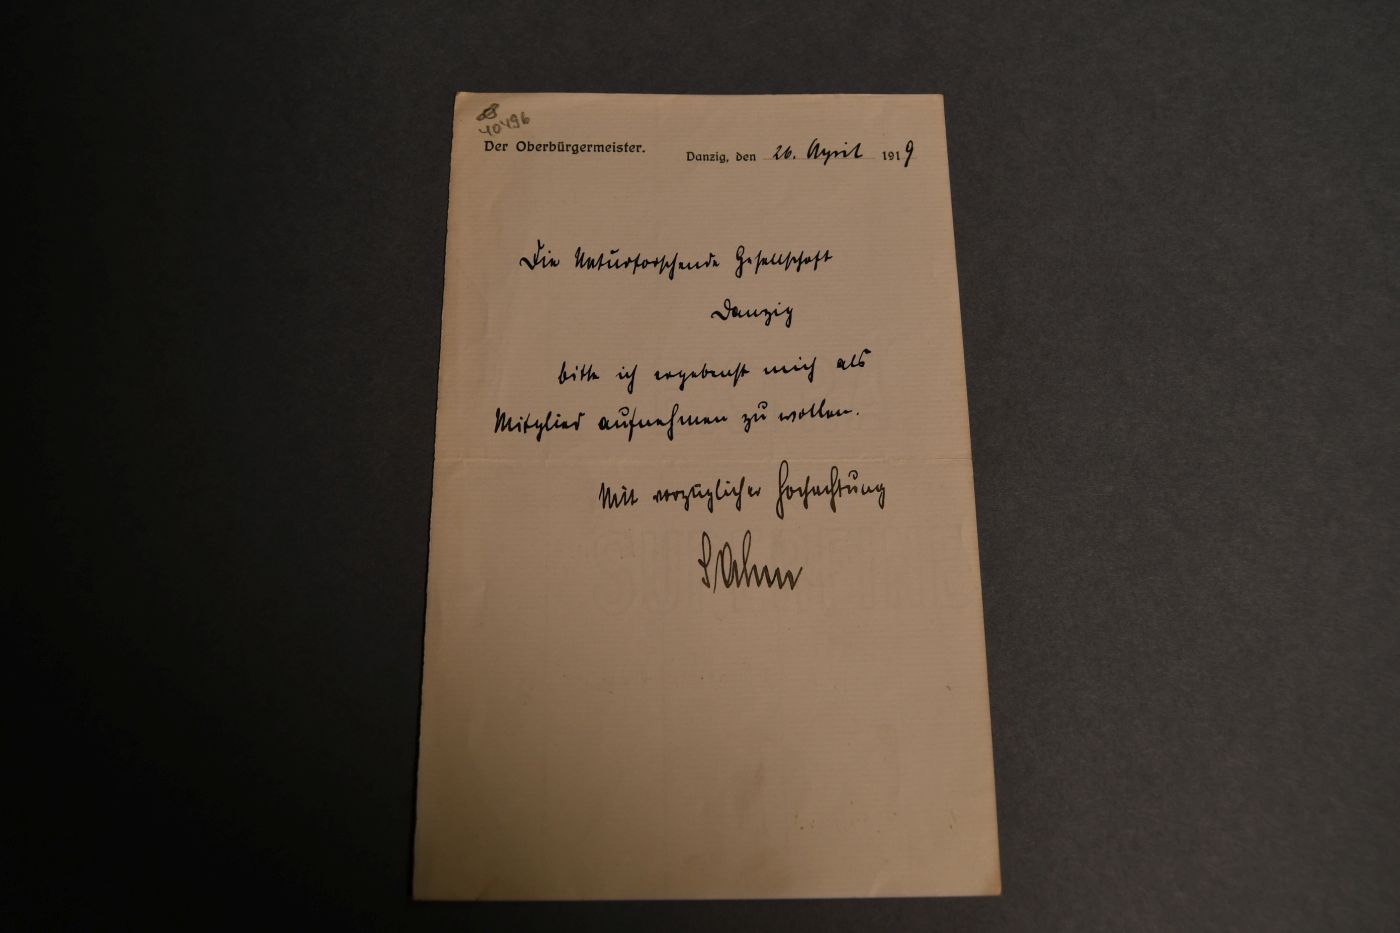 40496
Der Oberbürgermeister.
Danzig, den 26. April 1919
Die Naturforschende Gesellschaft
Danzig
bitte ich ergebenst mich als
Mitglied aufnehmen zu wollen.
Mit vorzüglicher Hochachtung
Sahm